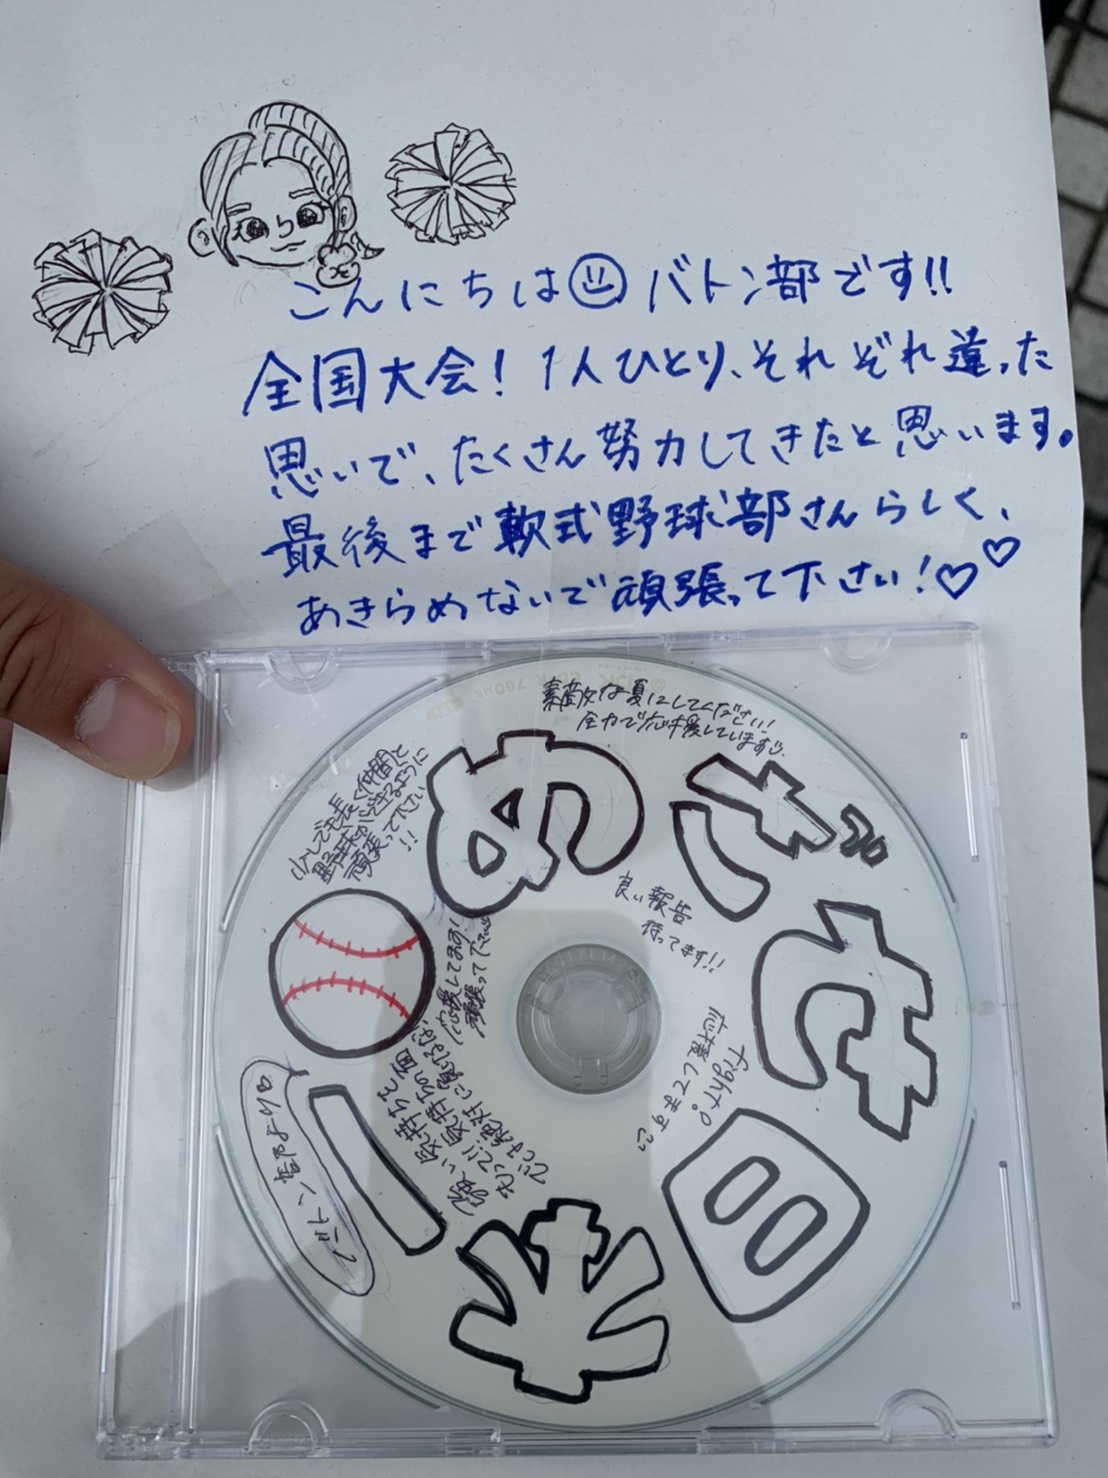 こんにちは バトン部です!!
全国大会! 1人ひとり、それぞれ違った
思いで、たくさん努力してきたと思います。
最後まで軟式野球部さんらしく、
あきらめないで頑張って下さい!♡♡
素敵な夏にしてください!
全力で応援しています
めざせ日本一
少しでも長く仲間と
野球ができるように
頑張って下さい
!!
良い報告
待ってます!!
応援してます!
頑張って下さい
fight。
応援してます
強い気持ちを
もって!! 気持ちの面
では絶対に負けるな!
バトン部より
CD-R 700MB